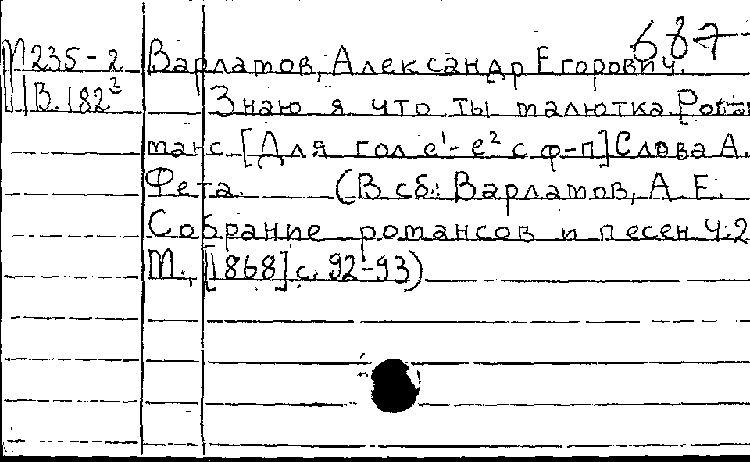 687
М235-2 Варламов, Александр Егорович.
В.182³ Знаю я что ты малютка. Рома
манс [Для гол. e¹-e² с ф-п] Слова А.
Фета. (В сб.: Варламов, А. Е.
Собрание романсов и песен Ч.2
М., [1868] с. 92-93)